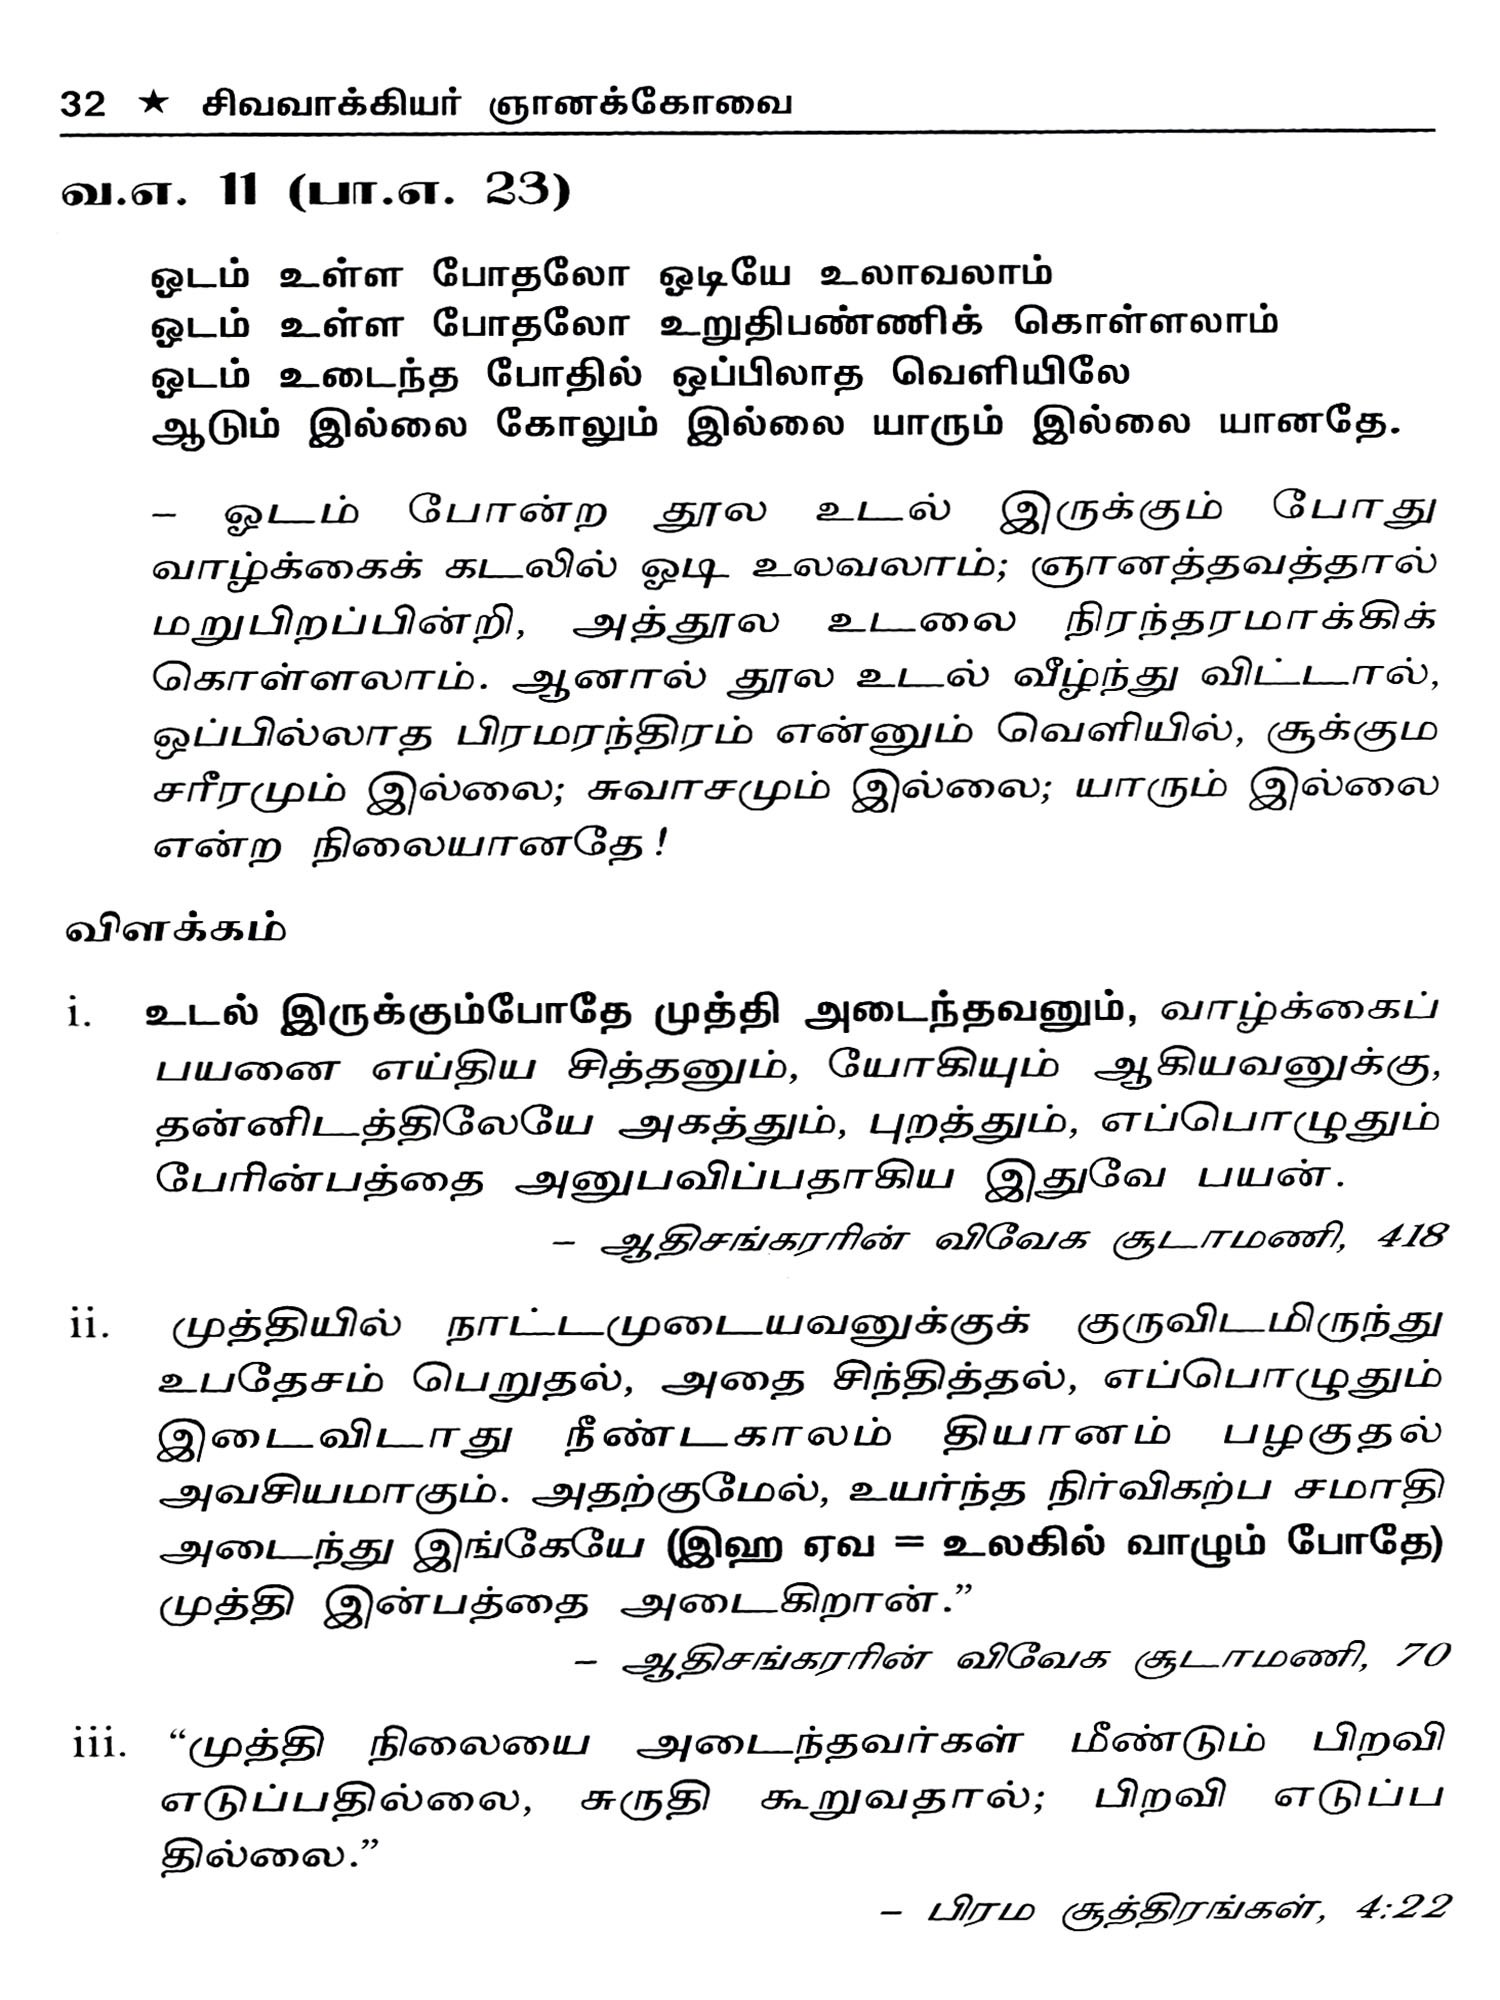 32 ★ சிவவாக்கியர் ஞானக்கோவை
வ.எ. 11 (பா.எ. 23)
ஓடம் உள்ள போதலோ ஓடியே உலாவலாம்
ஓடம் உள்ள போதலோ உறுதிபண்ணிக் கொள்ளலாம்
ஓடம் உடைந்த போதில் ஒப்பிலாத வெளியிலே
ஆடும் இல்லை கோலும் இல்லை யாரும் இல்லை யானதே.
– ஓடம் போன்ற தூல உடல் இருக்கும் போது
வாழ்க்கைக் கடலில் ஓடி உலவலாம்; ஞானத்தவத்தால்
மறுபிறப்பின்றி, அத்தூல உடலை நிரந்தரமாக்கிக்
கொள்ளலாம். ஆனால் தூல உடல் வீழ்ந்து விட்டால்,
ஒப்பில்லாத பிரமரந்திரம் என்னும் வெளியில், சூக்கும
சரீரமும் இல்லை; சுவாசமும் இல்லை; யாரும் இல்லை
என்ற நிலையானதே!
விளக்கம்
i. உடல் இருக்கும்போதே முத்தி அடைந்தவனும், வாழ்க்கைப்
பயனை எய்திய சித்தனும், யோகியும் ஆகியவனுக்கு,
தன்னிடத்திலேயே அகத்தும், புறத்தும், எப்பொழுதும்
பேரின்பத்தை அனுபவிப்பதாகிய இதுவே பயன்.
– ஆதிசங்கரரின் விவேக சூடாமணி, 418
ii. முத்தியில் நாட்டமுடையவனுக்குக் குருவிடமிருந்து
உபதேசம் பெறுதல், அதை சிந்தித்தல், எப்பொழுதும்
இடைவிடாது நீண்டகாலம் தியானம் பழகுதல்
அவசியமாகும். அதற்குமேல், உயர்ந்த நிர்விகற்ப சமாதி
அடைந்து இங்கேயே (இஹ ஏவ = உலகில் வாழும் போதே)
முத்தி இன்பத்தை அடைகிறான்.”
– ஆதிசங்கரரின் விவேக சூடாமணி, 70
iii. “முத்தி நிலையை அடைந்தவர்கள் மீண்டும் பிறவி
எடுப்பதில்லை, சுருதி கூறுவதால்; பிறவி எடுப்ப
தில்லை.”
– பிரம சூத்திரங்கள், 4:22